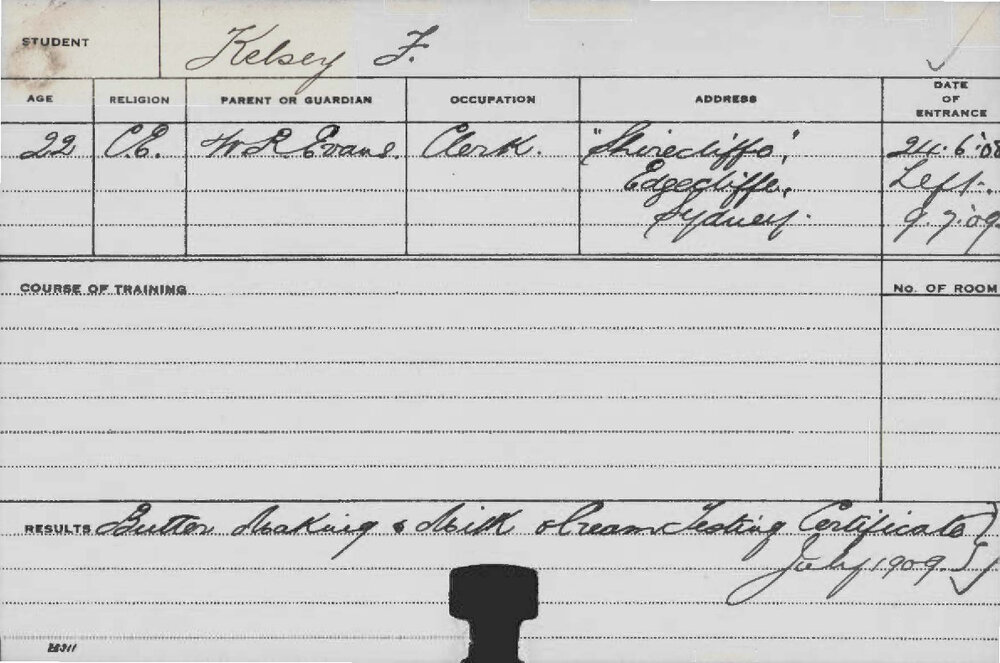 STUDENT Kelsey F.
AGE RELIGION PARENT OR GUARDIAN OCCUPATION ADDRESS DATE OF ENTRANCE
22 C.E. W R Evans. Clerk. "Shirecliffe", 24.6.'08
Edgecliffe, Left.
Sydney. 9.7.'09
COURSE OF TRAINING No. OF ROOM
RESULTS Butter Making & Milk & Cream Testing Certificate
July 1909.